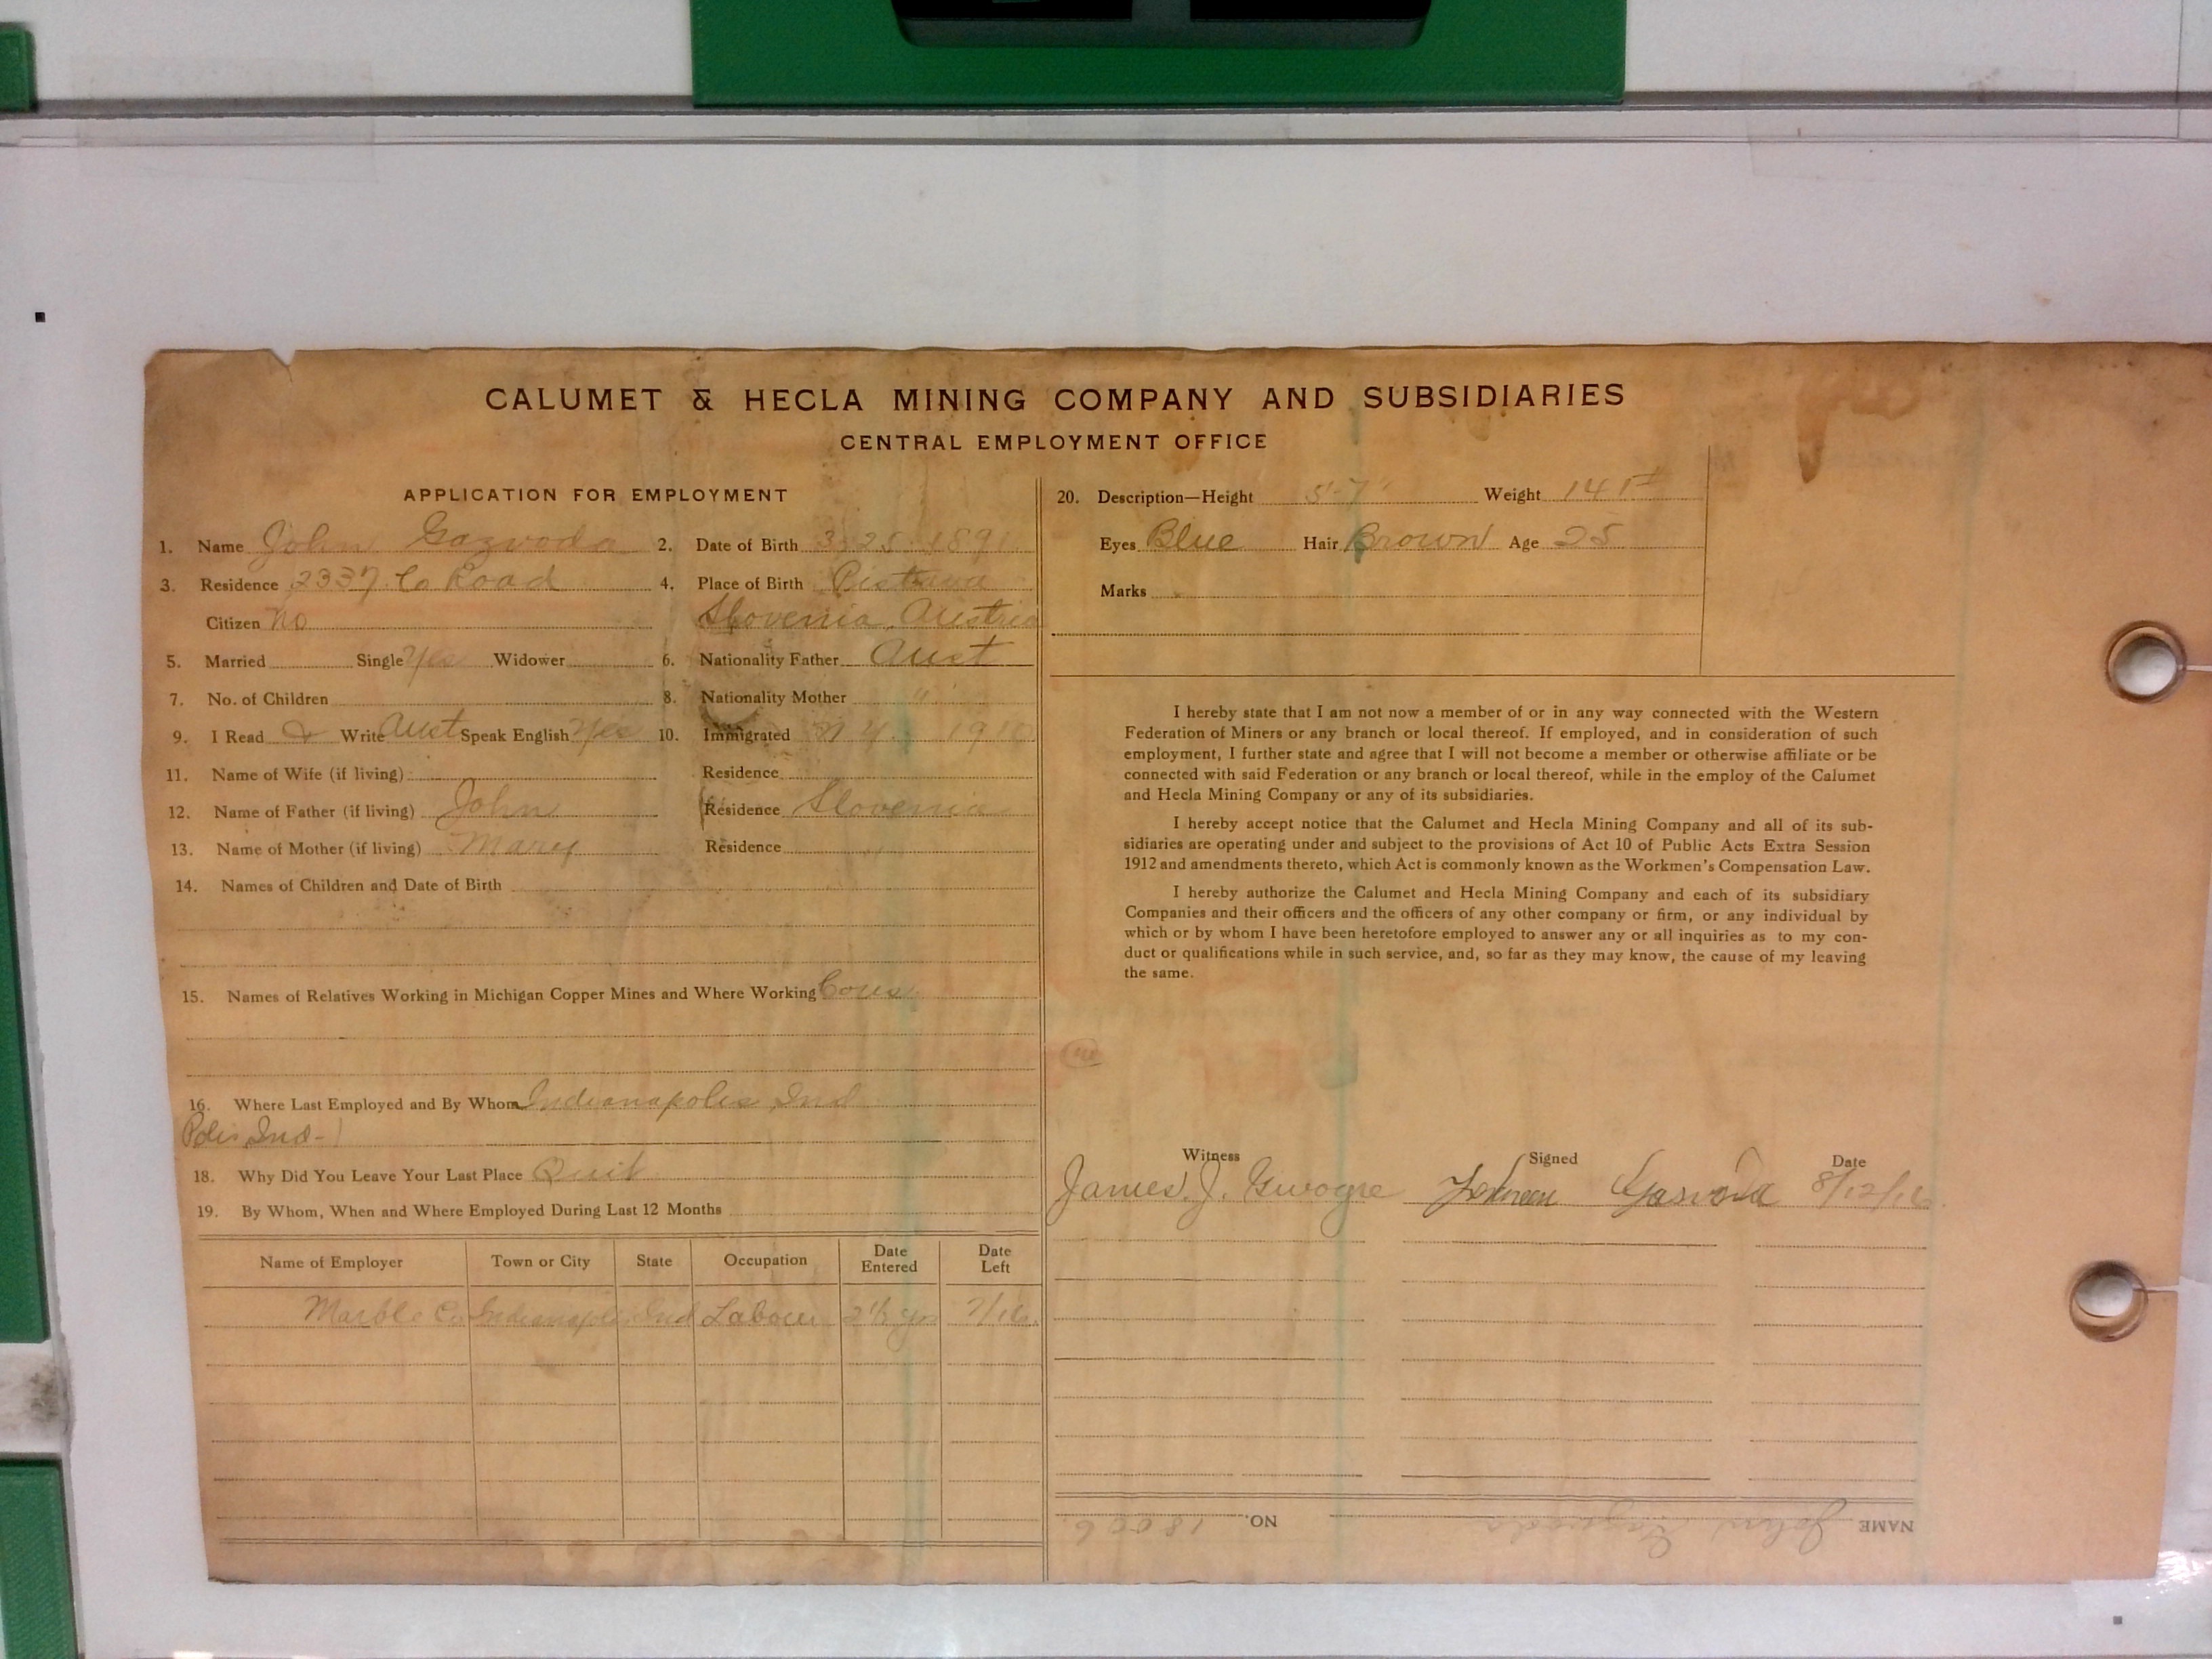 CALUMET & HECLA MINING COMPANY AND SUBSIDIARIES
CENTRAL EMPLOYMENT OFFICE
APPLICATION FOR EMPLOYMENT
1. Name John Gazvoda
2. Date of Birth 3 25 1891
3. Residence 2337 Co Road
4. Place of Birth
Citizen No
Slovenia Austria
5. Married Single Yes Widower
6. Nationality Father Aust
7. No. of Children
8. Nationality Mother "
9. I Read & Write Aust Speak English Yes
10. Immigrated N.Y. 1910
11. Name of Wife (if living)
Residence
12. Name of Father (if living) John
Residence Slovenia
13. Name of Mother (if living) Mary
Residence "
14. Names of Children and Date of Birth
15. Names of Relatives Working in Michigan Copper Mines and Where Working Cous
16. Where Last Employed and By Whom Indianapolis Ind
Polis, Ind-
18. Why Did You Leave Your Last Place Quit
19. By Whom, When and Where Employed During Last 12 Months
Name of Employer Town or City State Occupation Date Entered Date Left
Marble Co Indianapolis Ind Labour 2 1/2 yrs 7/16
20. Description—Height 5'-7" Weight 141
Eyes Blue Hair Brown Age 25
Marks
I hereby state that I am not now a member of or in any way connected with the Western
Federation of Miners or any branch or local thereof. If employed, and in consideration of such
employment, I further state and agree that I will not become a member or otherwise affiliate or be
connected with said Federation or any branch or local thereof, while in the employ of the Calumet
and Hecla Mining Company or any of its subsidiaries.
I hereby accept notice that the Calumet and Hecla Mining Company and all of its sub-
sidiaries are operating under and subject to the provisions of Act 10 of Public Acts Extra Session
1912 and amendments thereto, which Act is commonly known as the Workmen's Compensation Law.
I hereby authorize the Calumet and Hecla Mining Company and each of its subsidiary
Companies and their officers and the officers of any other company or firm, or any individual by
which or by whom I have been heretofore employed to answer any or all inquiries as to my con-
duct or qualifications while in such service, and, so far as they may know, the cause of my leaving
the same.
Witness Signed Date
James J. Gasvoda 8/12/16
NAME John Gazvoda NO. 18006